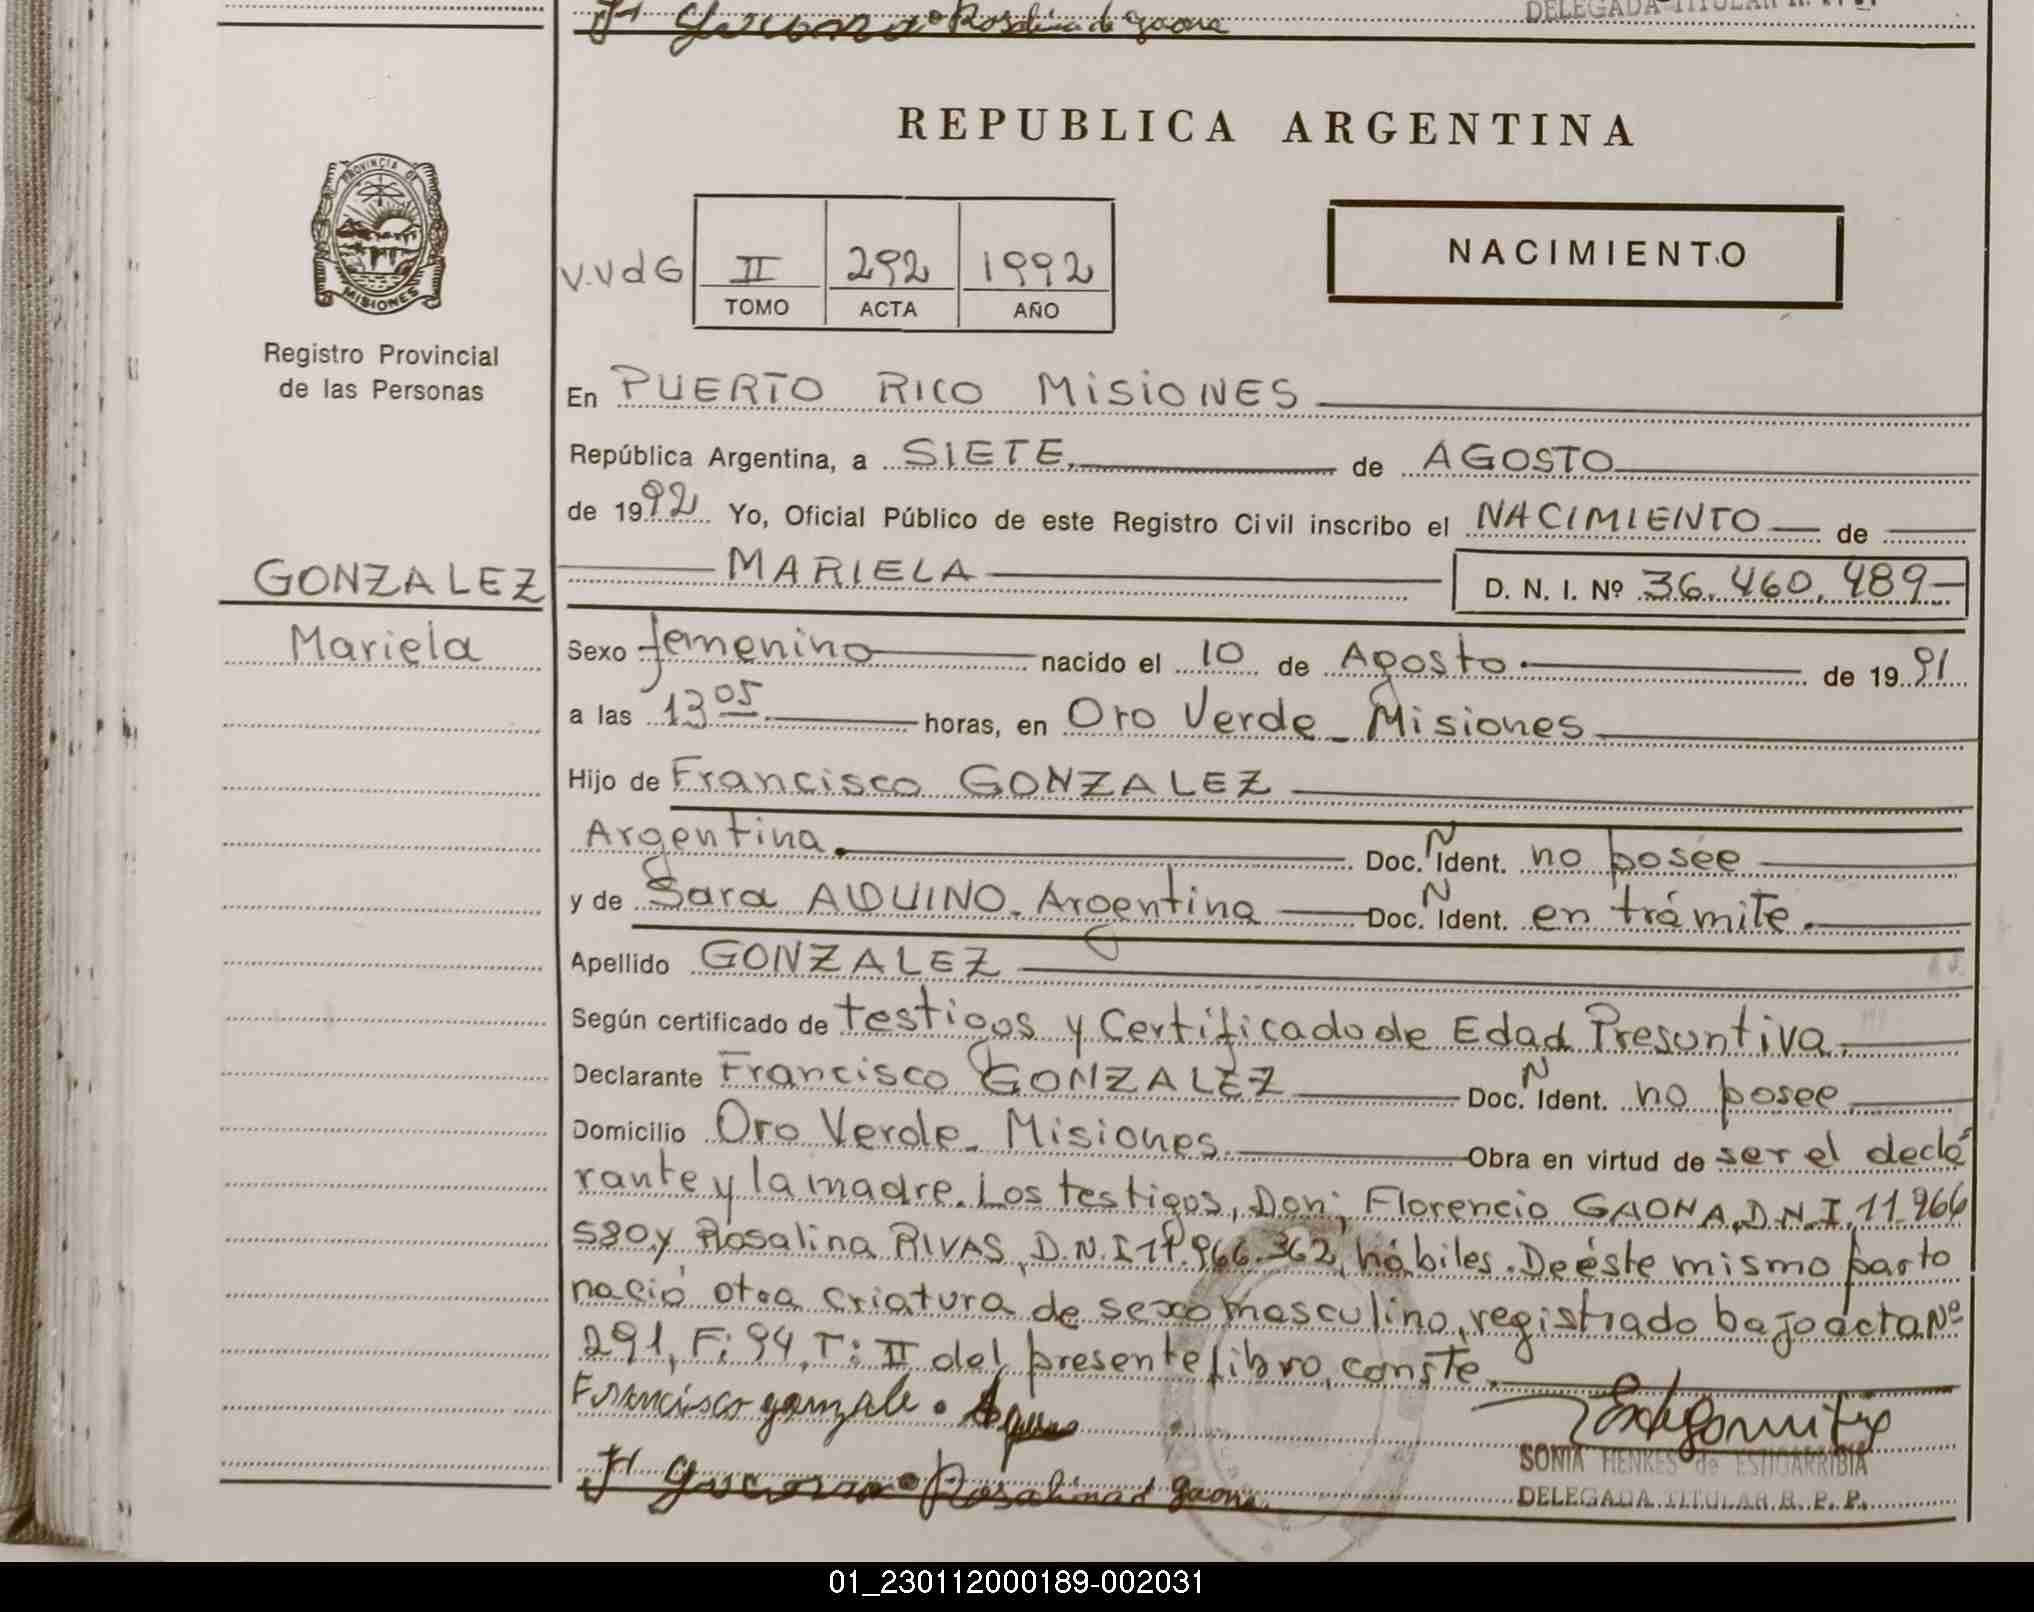 Rosalina de gaona
DELEGADA TITULAR R. P. P.
REPUBLICA ARGENTINA
PROVINCIA DE
MISIONES
Registro Provincial
de las Personas
V.VdG II 292 1992
TOMO ACTA AÑO
NACIMIENTO
En PUERTO RICO MISIONES
República Argentina, a SIETE de AGOSTO
de 1992 Yo, Oficial Público de este Registro Civil inscribo el NACIMIENTO de
GONZALEZ
Mariela
MARIELA D. N. I. Nº 36.460.489-
Sexo femenino nacido el 10 de Agosto de 1991
a las 13 05 horas, en Oro Verde - Misiones
Hijo de Francisco GONZALEZ
Argentina. Doc. N Ident. no posee
y de Sara AQUINO. Argentina Doc. N Ident. en trámite.
Apellido GONZALEZ
Según certificado de testigos y Certificado de Edad Presuntiva.
Declarante Francisco GONZALEZ Doc. N Ident. no posee
Domicilio Oro Verde - Misiones Obra en virtud de ser el decla
rante y la madre. Los testigos, Don: Florencio GAONA, D.N.I. 11.966
580 y Rosalina RIVAS, D.N.I 17.966.362, hábiles. De éste mismo parto
nació otra criatura de sexo masculino, registrado bajo acta Nº
291, F: 94, T: II del presente libro, conste.
Francisco gonzale.
Rosalina d gaona
SONIA HENKES de ESTIGARRIBIA
DELEGADA TITULAR R. P. P.
01_230112000189-002031